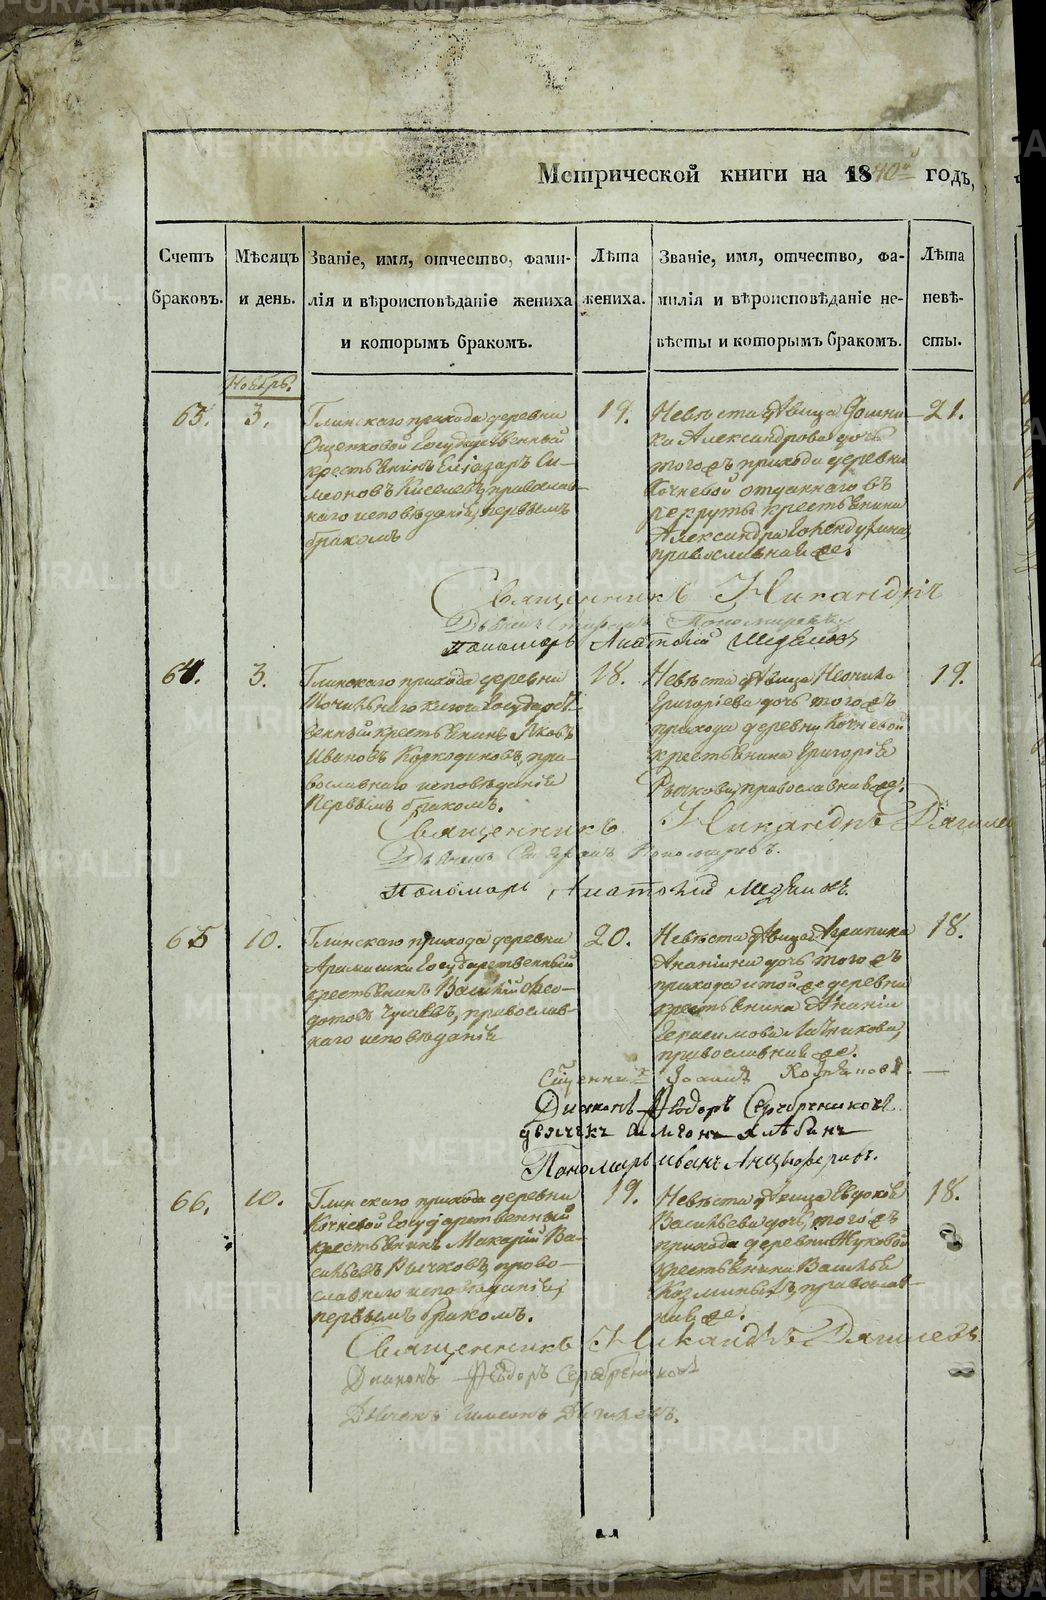 Метрической книги на 1840й годъ,
Счетъ браковъ.
Мѣсяцъ и день.
Званіе, имя, отчество, фами-
лія и вѣроисповѣданіе жениха
и которымъ бракомъ.
Лѣта жениха.
Званіе, имя, отчество, фа-
милія и вѣроисповѣданіе не-
вѣсты и которымъ бракомъ.
Лѣта невѣ-
сты.
Ноябрь.
63.
3.
Глинскаго прихода деревни
Ощепковой Государственный
крестьянинъ Елїазаръ Си-
меоновъ Киселевъ, православ-
наго исповѣданія, первымъ
бракомъ
19.
Невѣста дѣвица Домни-
ка Александрова дочь
тогожъ прихода деревни
Кочневой отданнаго въ
рекруты крестьянина
Александра
православнаяже.
21.
Священникъ Никандръ
Дьячекъ Пономаревъ
Пономарь Анатолій
64.
3.
Глинскаго прихода деревни
ключа Государст-
венный крестьянинъ Яковъ
Ивановъ Коркодиновъ, пра-
вославнаго исповѣданія
первымъ бракомъ.
18.
Невѣста дѣвица Неонила
Григоріева дочь тогожъ
прихода деревни Кочневой
крестьянина Григорія
Рычкова, православнаяже.
19.
Священникъ Никандръ Дягилевъ
Дьячекъ Пономаревъ.
Пономарь Анатолій
65
10.
Глинскаго прихода деревни
Арамашки Государственный
крестьянинъ Василій Ѳео-
дотовъ Гусевъ, православ-
наго исповѣданія
20.
Невѣста дѣвица Агрипина
Ананіина дочь тогожъ
прихода и тойже деревни
крестьянина Ананіи
Герасимова Латникова,
православнаяже.
18.
Сщенникъ Іоаннъ
Діаконъ Ѳеодоръ Серебрениковъ
дьячекъ Симеонъ
Пономарь Иванъ Анцыферовъ.
66.
10.
Глинскаго прихода деревни
Кочневой Государственный
крестьянинъ Макарій Ва-
сильевъ Рычковъ, право-
славнаго исповѣданія,
первымъ бракомъ.
19.
Невѣста дѣвица Евдокія
Васильева дочь, тогожъ
прихода деревни Жуковой
крестьянина Василья
Козминыхъ, православ-
наяже.
18.
Священникъ Никандръ Дягилевъ
Діаконъ Ѳеодоръ Серебрениковъ
Дьячекъ Симеонъ
METRIKI.GASO-URAL.RU